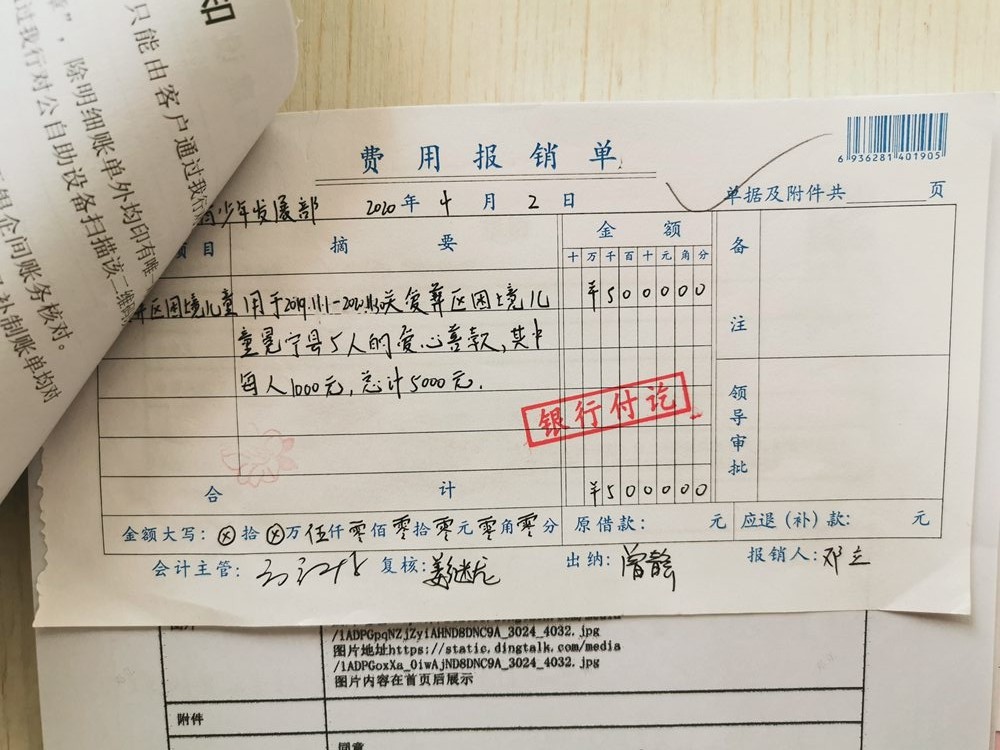 只能由客户通过我行
除明细账单外均印有唯一
过我行对公自助设备扫描该二维码
银企间账务核对。
制账单均对
费用报销单
6 936281 401905
青少年发展部 2020年4月2日
单据及附件共 页
项目 摘要 金额 备注
十万千百十元角分
¥500000
困境儿童 用于2019.11.1-
区困境儿
童冕宁县5人的爱心善款,其中
每人1000元,总计5000元.
银行付讫
领导审批
合计 ¥500000
金额大写:ⓧ拾ⓧ万伍仟零佰零拾零元零角零分 原借款: 元 应退(补)款: 元
会计主管: 复核:姜继龙 出纳:曾静 报销人:邓立
/lADPGpqNZjZyiAHND8DNC9A_3024_4032.jpg
图片地址https://static.dingtalk.com/media
/lADPGoxXa_0iwAjND8DNC9A_3024_4032.jpg
图片内容在首页后展示
附件
同意